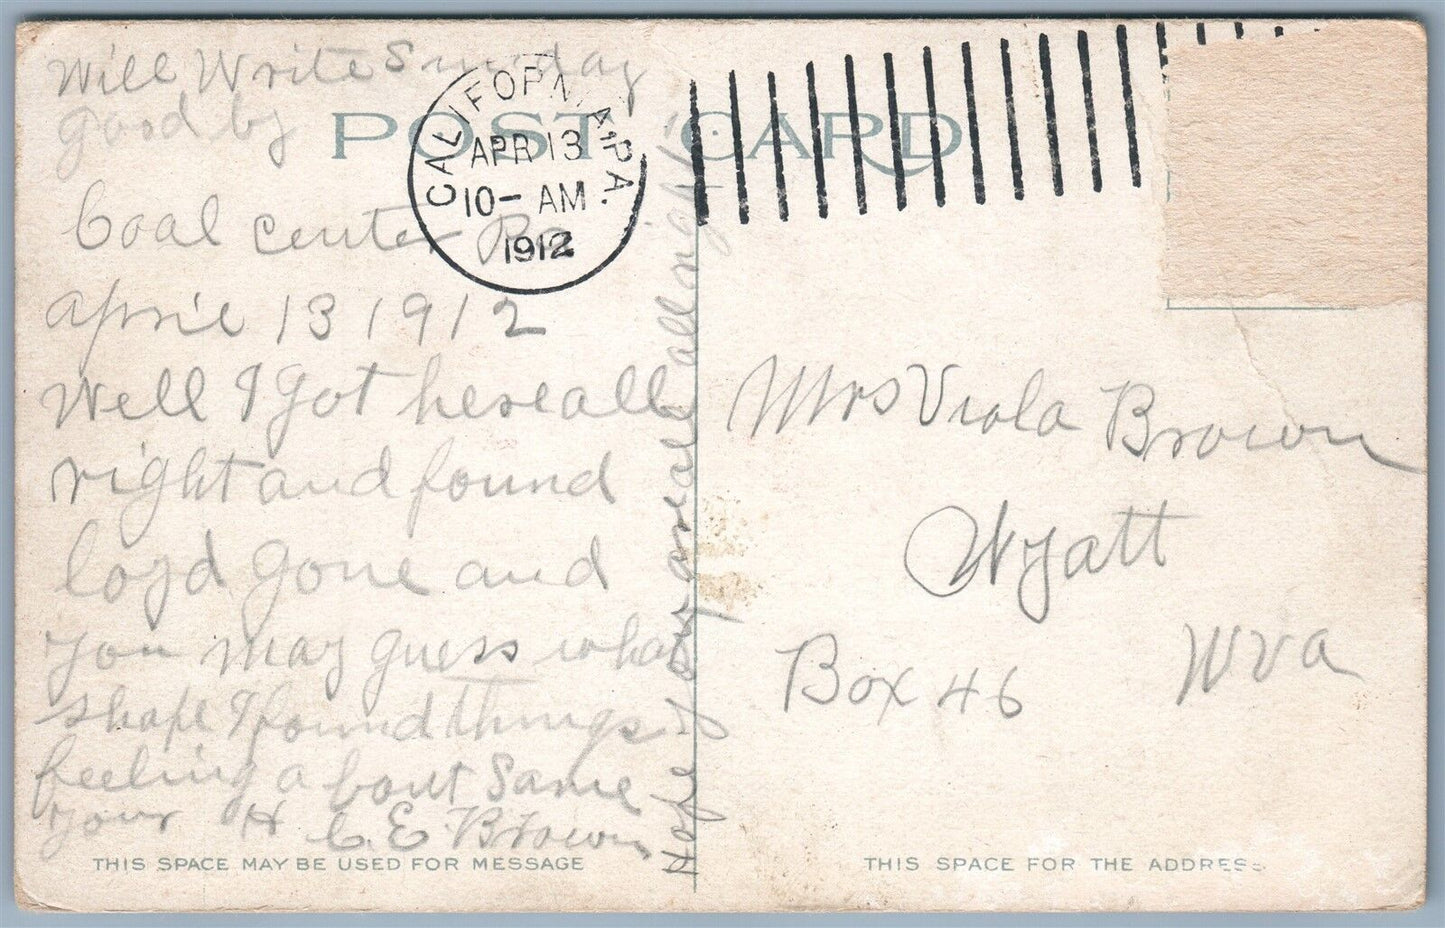 Will Write Sunday
good by
POST CARD
CALIFORNIA, PA.
APR 13
10-AM
1912
Coal center Pa
april 13 1912
Well I got here all
right and found
loyd gone and
you may guess what
shape I found things
feeling about Same
your H C. E. Brown
Hope you are all right
Mrs Viola Brown
Wyatt
Box 46 W va
THIS SPACE MAY BE USED FOR MESSAGE
THIS SPACE FOR THE ADDRESS